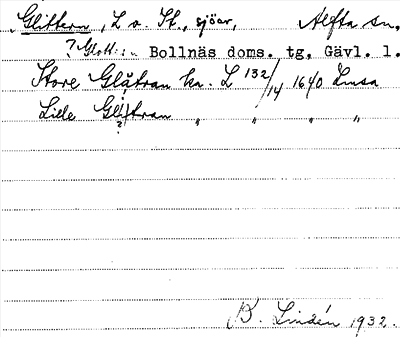 Glittern, L. o. St., sjöar, Alfta sn.
? Glott: n Bollnäs doms. tg, Gävl. l.
Store Glåtran kn. L 132/14 1640 Lmsa
Lille Glitran " " " "
?
B. Lindén 1932.